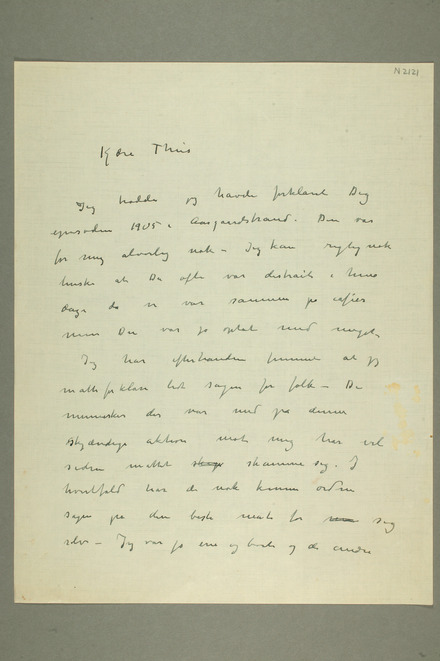 N 2121
Kjære Thiis
Jeg trodde jeg havde forklaret Dig
episoden 1905 i Aasgaardstrand. Den var
for mig alvorlig nok – Jeg kan rigtignok
huske at Du ofte var distrait i hine
dage da vi var sammen på caféer
men Du var jo optat med meget
Jeg har efterhaanden funnet at jeg
måtte forklare lidt sagen for folk – De
mennesker der var med på denne
skjændige aktion mot mig har vel
siden måttet skamme sig. I
hvertfald har de nok kunnet ordne
sagen på den beste måte for sig
selv – Jeg var jo ene og borte og de andre